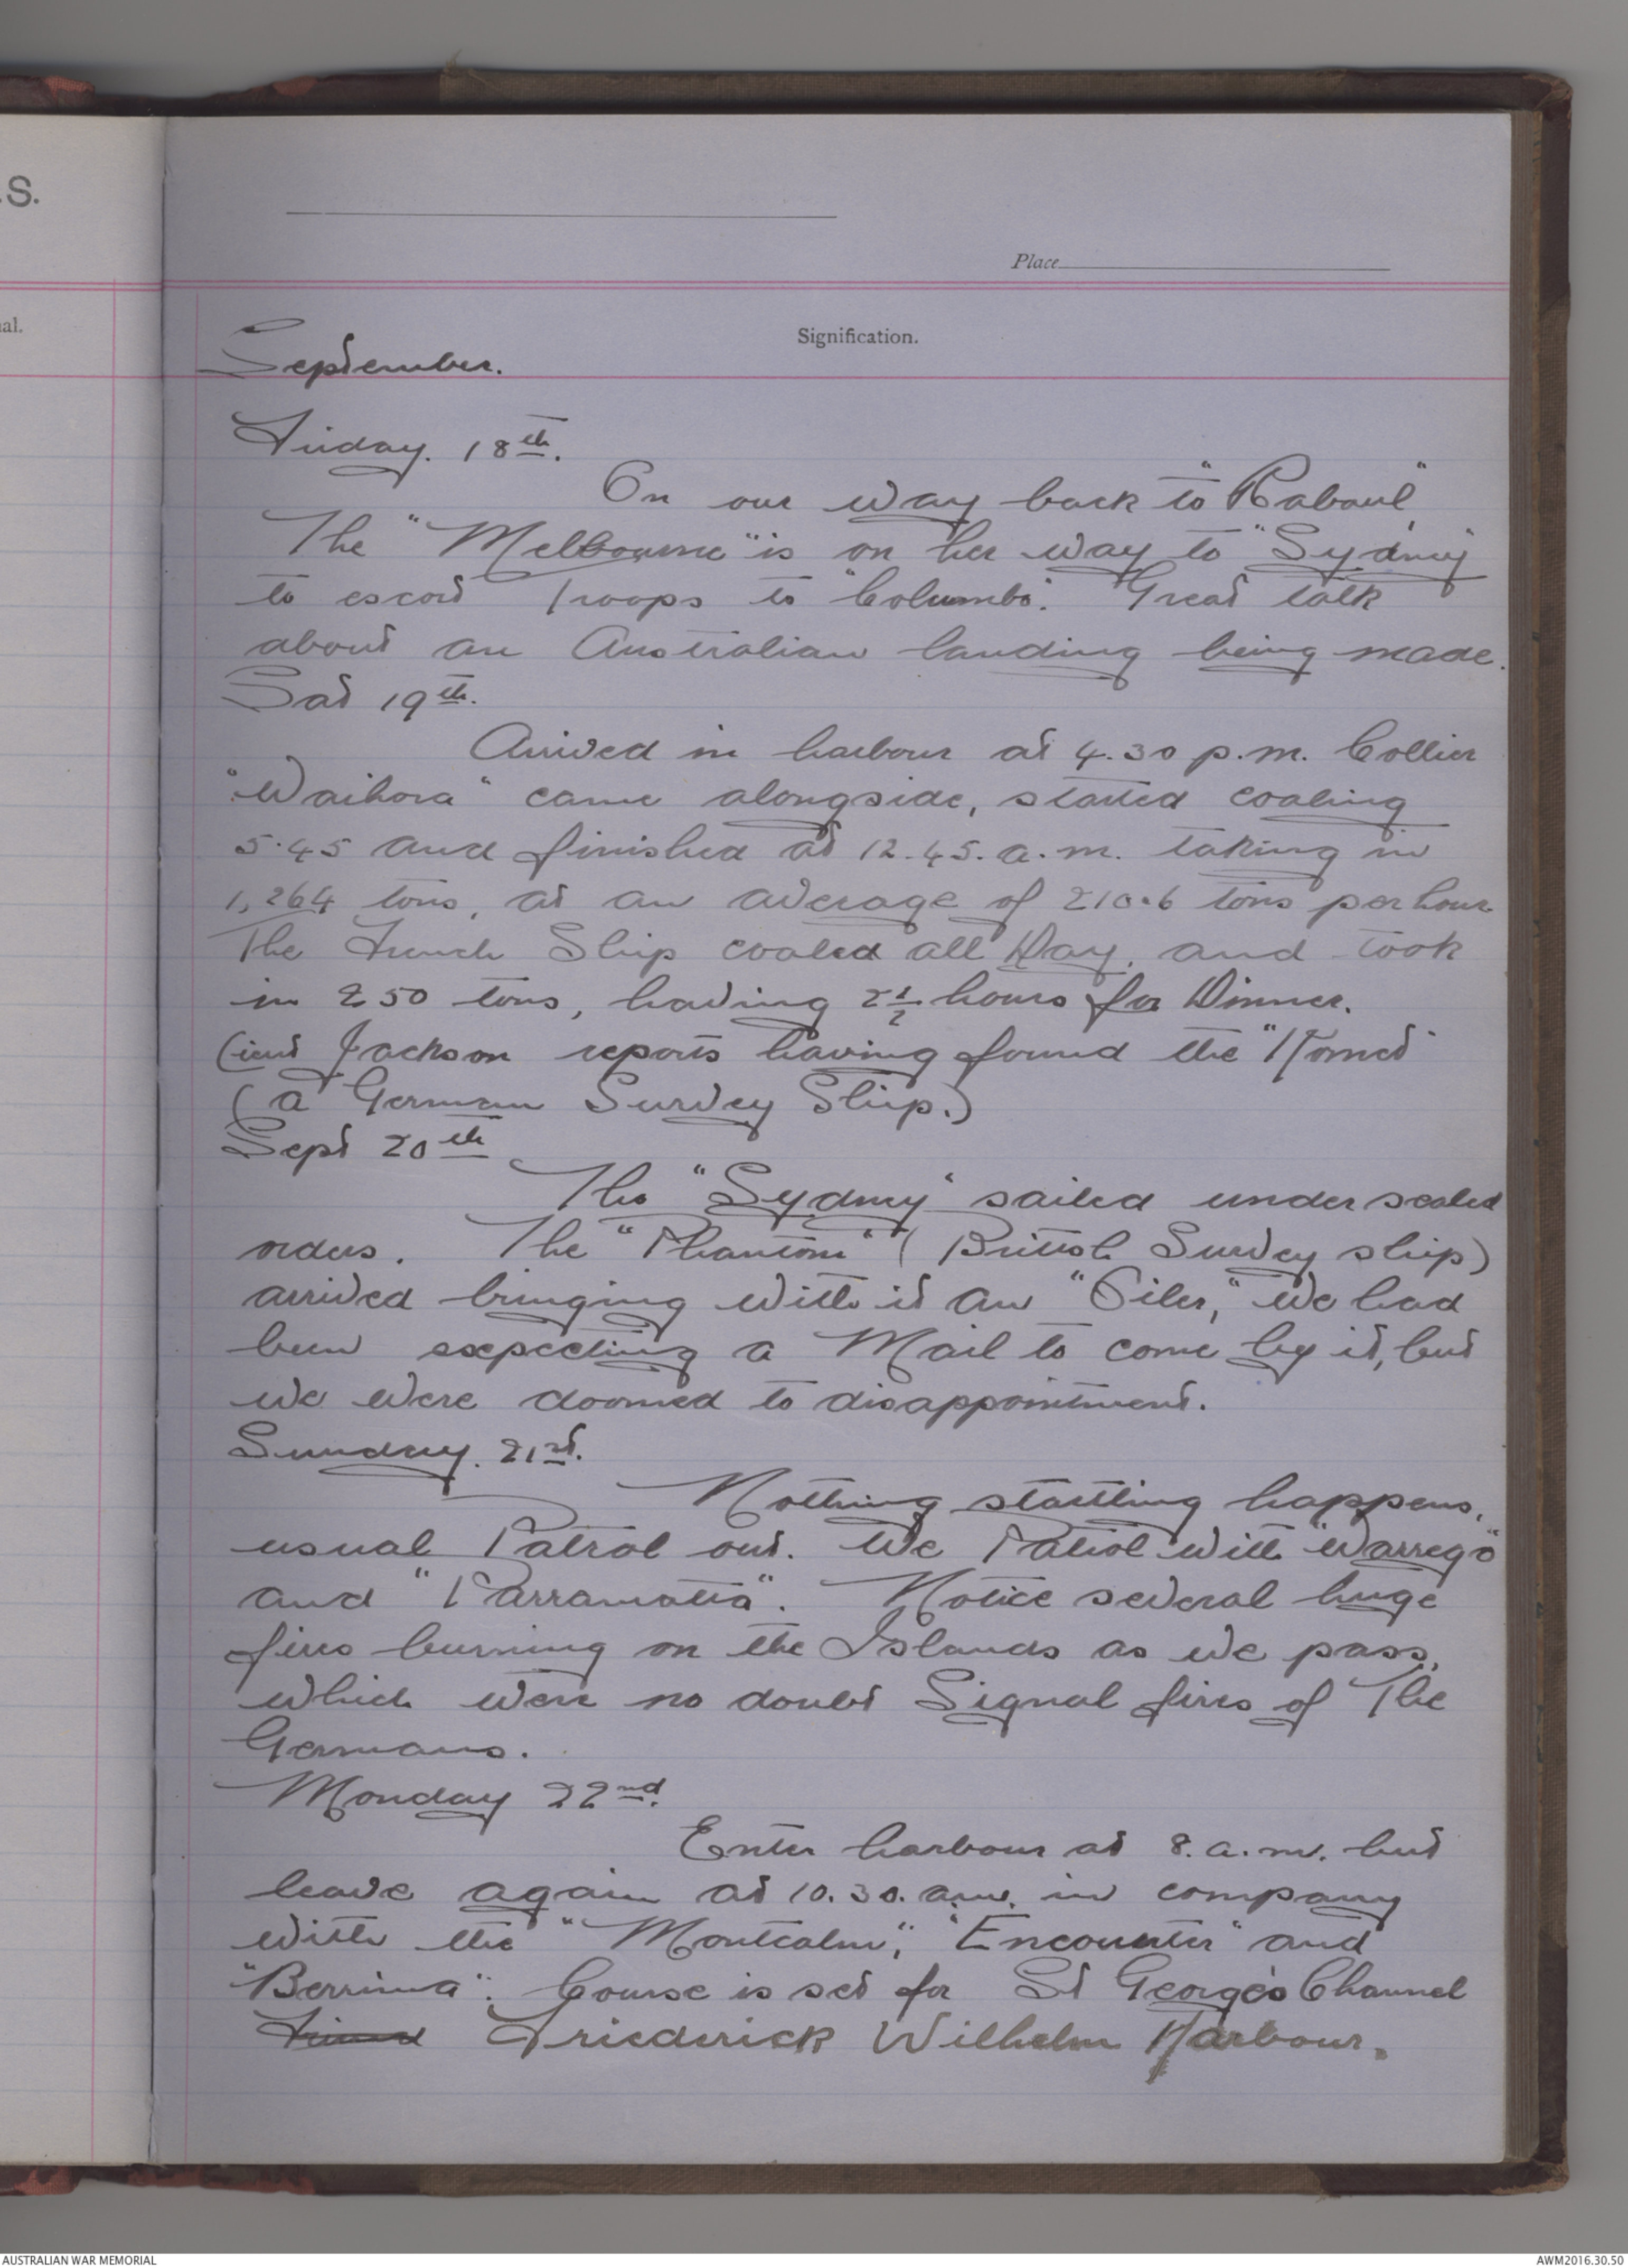 .S.
Place
al.
Signification.
September.
Friday. 18th.
On our way back to "Rabaul",
The "Melbourne" is on her way to "Sydney"
to escort Troops to "Columbo". Great talk
about an Australian landing being made.
Sat 19th.
Arrived in harbour at 4.30 p.m. Collier
"Waihora" came alongside, started coaling
5.45 and finished at 12.45. a.m. taking in
1,264 tons, at an average of 210.6 tons per hour
The French Ship coaled all Day, and took
in 250 tons, having 2½ hours for Dinner.
Lieut Jackson reports having found the
(a German Survey Ship.)
Sept 20th
The "Sydney" sailed under sealed
orders. The "Phantom" (British Survey ship)
arrived bringing with it an "Oiler," we had
been expecting a Mail to come by it, but
we were doomed to disappointment.
Sunday. 21st.
Nothing startling happens,
usual Patrol out. We Patrol with "Warrego"
and "Parramatta". Notice several huge
fires burning on the Islands as we pass,
which were no doubt Signal fires of The
Germans.
Monday 22nd.
Enter harbour at 8. a.m. but
leave again at 10.30. a.m. in company
with the "Montcalm", "Encounter" and
"Berrima". Course is set for St George's Channel
Friederick Wilhelm Harbour.
AUSTRALIAN WAR MEMORIAL
AWM2016.30.50